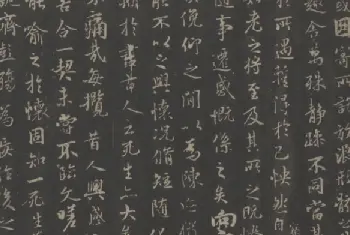 因寄所託放浪
趣舍萬殊靜躁不同當其
於所遇暫得於己快然自
老之將至及其所之既惓
隨事遷感慨係之矣向
俛仰之間以為陳迹
不以之興懷況脩短隨化
於盡古人云死生亦大矣
痛哉每攬昔人興感
若合一契未嘗不臨文嗟
能喻之於懷固知一死生
齊彭殤為妄作後之